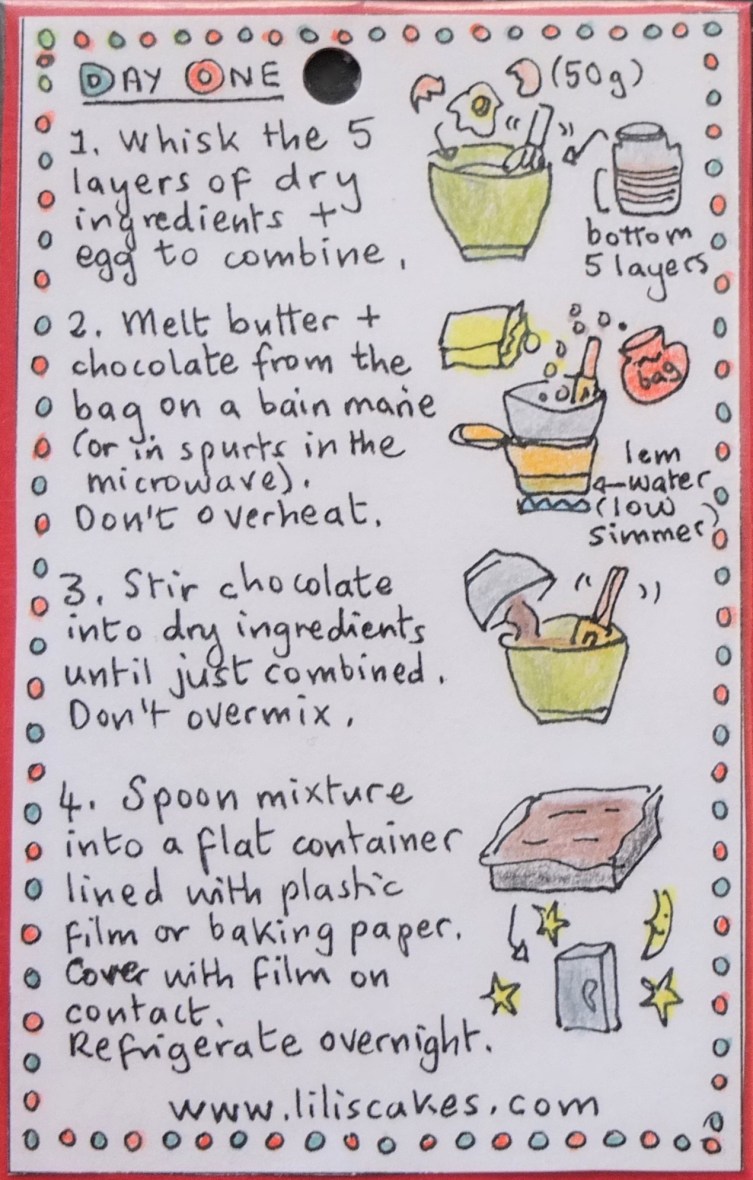 DAY ONE
(50g)
1. Whisk the 5
layers of dry
ingredients +
egg to combine.
bottom
5 layers
2. Melt butter +
chocolate from the
bag on a bain marie
(or in spurts in the
microwave).
Don't overheat.
bag
1cm
water
(low
simmer)
3. Stir chocolate
into dry ingredients
until just combined.
Don't overmix.
4. Spoon mixture
into a flat container
lined with plastic
film or baking paper.
Cover with film on
contact.
Refrigerate overnight.
www.liliscakes.com